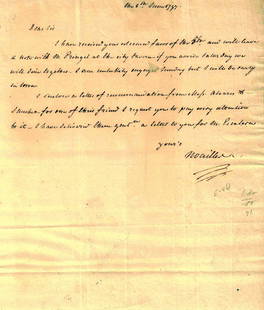 the 6th June 1797
Dear Sir
I have received your esteemed favor of the and will leave
a note with the at the city tavern if you arrive Saturday we
will dine together. I am engaged Sunday but I will be early
in town
I enclose a letter of recommendation from Messrs &
for one of their friend I request you to pay every attention
to it - I have delivered them a letter to you for the
your's
Noailles